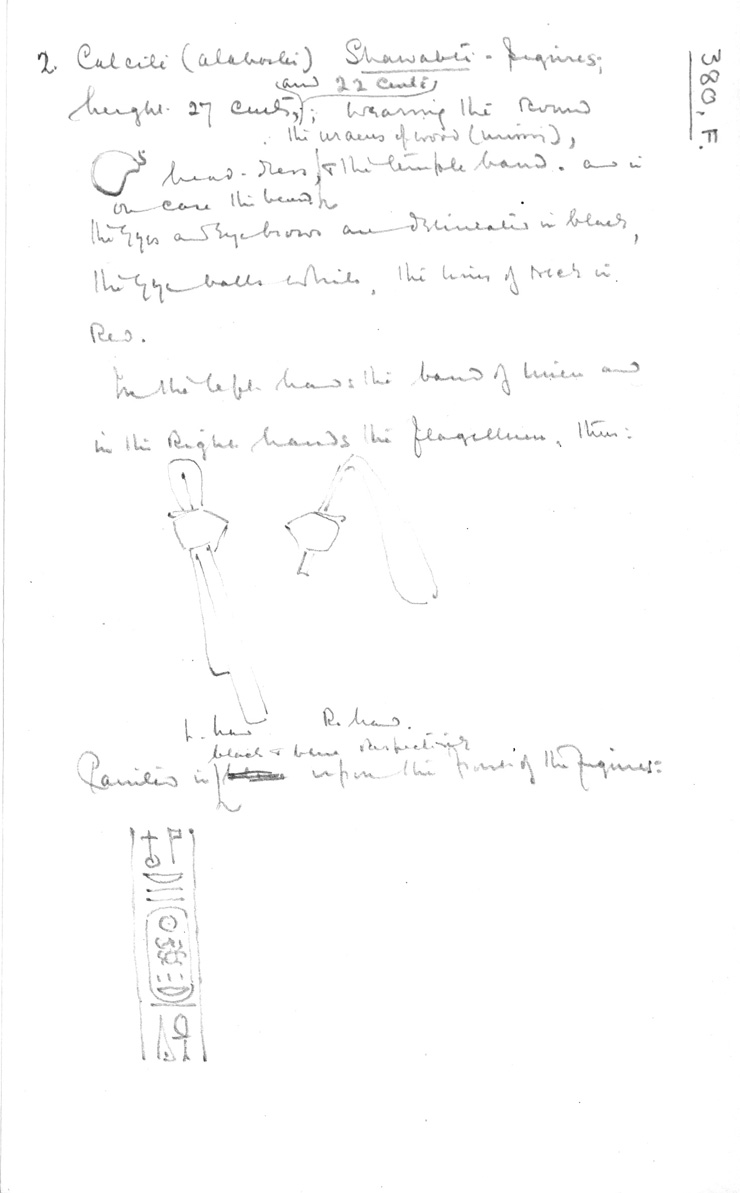 380, F.
2. Calcite (alabaster) Shawabti-figures;
(and 22 cents)
height 27 cents,; wearing the Round
the uraeus of wood (missing),
head-dress, & the temple band. and in
one case the beard
the Eyes and Eyebrows are delineated in black,
the Eye balls white, the lines of neck in
Red.
In the left hands the band of linen and
in the Right hands the flagellum, thus:
L. hand R. hand.
black & blue respectively
Painted in upon the front of the figures: